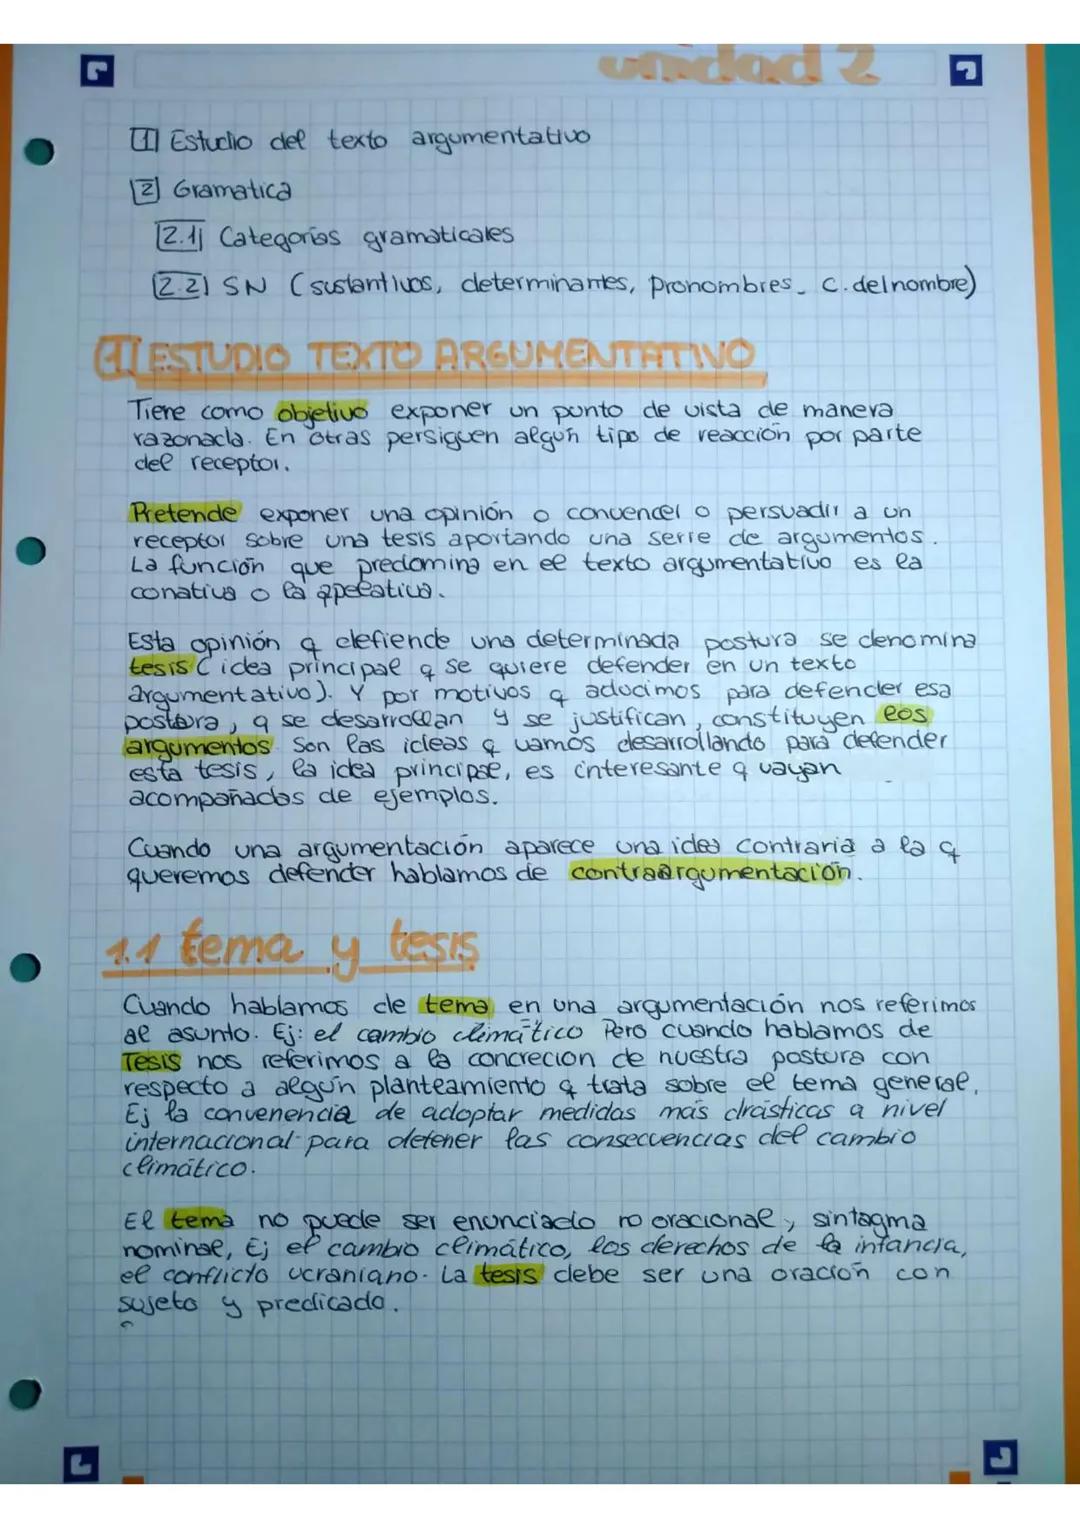 unidad 2
1 Estudio del texto argumentativo
2 Gramatica
2.1 Categorias gramaticales
2.2 SN (sustantivos, determinantes, pronombres, c. del nombre)
1 ESTUDIO TEXTO ARGUMENTATIVO
Tiene como objetivo exponer un punto de vista de manera
razonada. En otras persiguen algún tipo de reacción por parte
del receptor.
Pretende exponer una opinión o convencer o persuadir a un
receptor sobre una tesis aportando una serie de argumentos.
La función que predomina en el texto argumentativo es la
conativa o la apelativa.
Esta opinión q defiende una determinada postura se denomina
tesis (idea principal q se quiere defender en un texto
argumentativo). Y por motivos q aducimos para defender esa
postura, q se desarrollan y se justifican, constituyen los
argumentos. Son las ideas q vamos desarrollando para defender
esta tesis, la idea principal, es interesante q vayan
acompañadas de ejemplos.
Cuando una argumentación aparece una idea contraria a la q
queremos defender hablamos de contraargumentación.
1.1 tema y tesis
Cuando hablamos de tema en una argumentación nos referimos
al asunto. Ej: el cambio climático Pero cuando hablamos de
Tesis nos referimos a la concrecion de nuestra postura con
respecto a algún planteamiento q trata sobre el tema general.
Ej la convenencia de adoptar medidas más drásticas a nivel
internacional para detener las consecuencias del cambio
climático.
El tema no puede ser enunciado no oracional, sintagma
nominal, Ej el cambio climático, los derechos de la infancia,
el conflicto ucraniano. La tesis debe ser una oración con
sujeto y predicado.